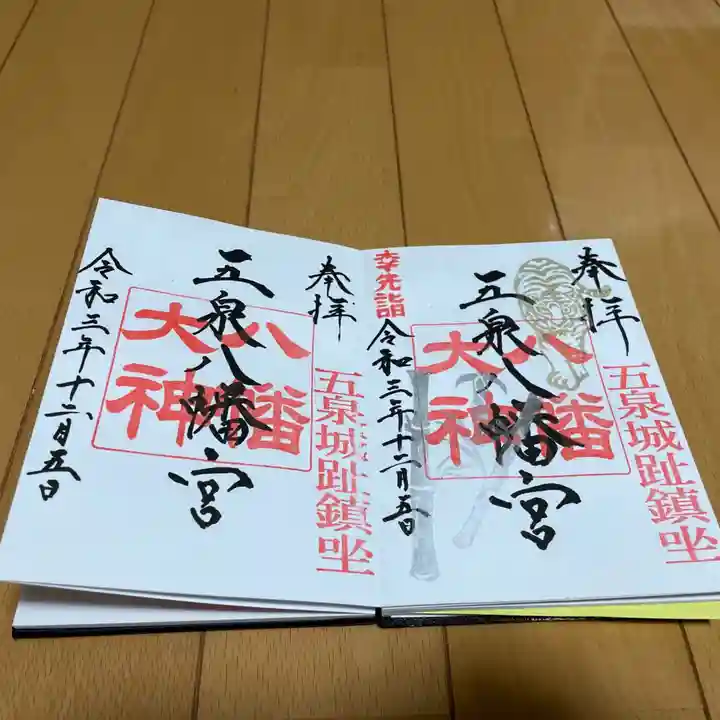 奉拝
五泉城趾鎮坐
八幡大神
五泉八幡宮
令和三年十二月五日
幸先詣
奉拝
五泉城趾鎮坐
八幡大神
五泉八幡宮
令和三年十二月五日